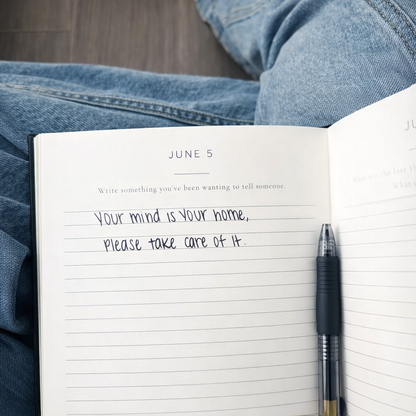 JUNE 5
Write something you've been wanting to tell someone.
Your mind is your home,
Please take care of it.
JU